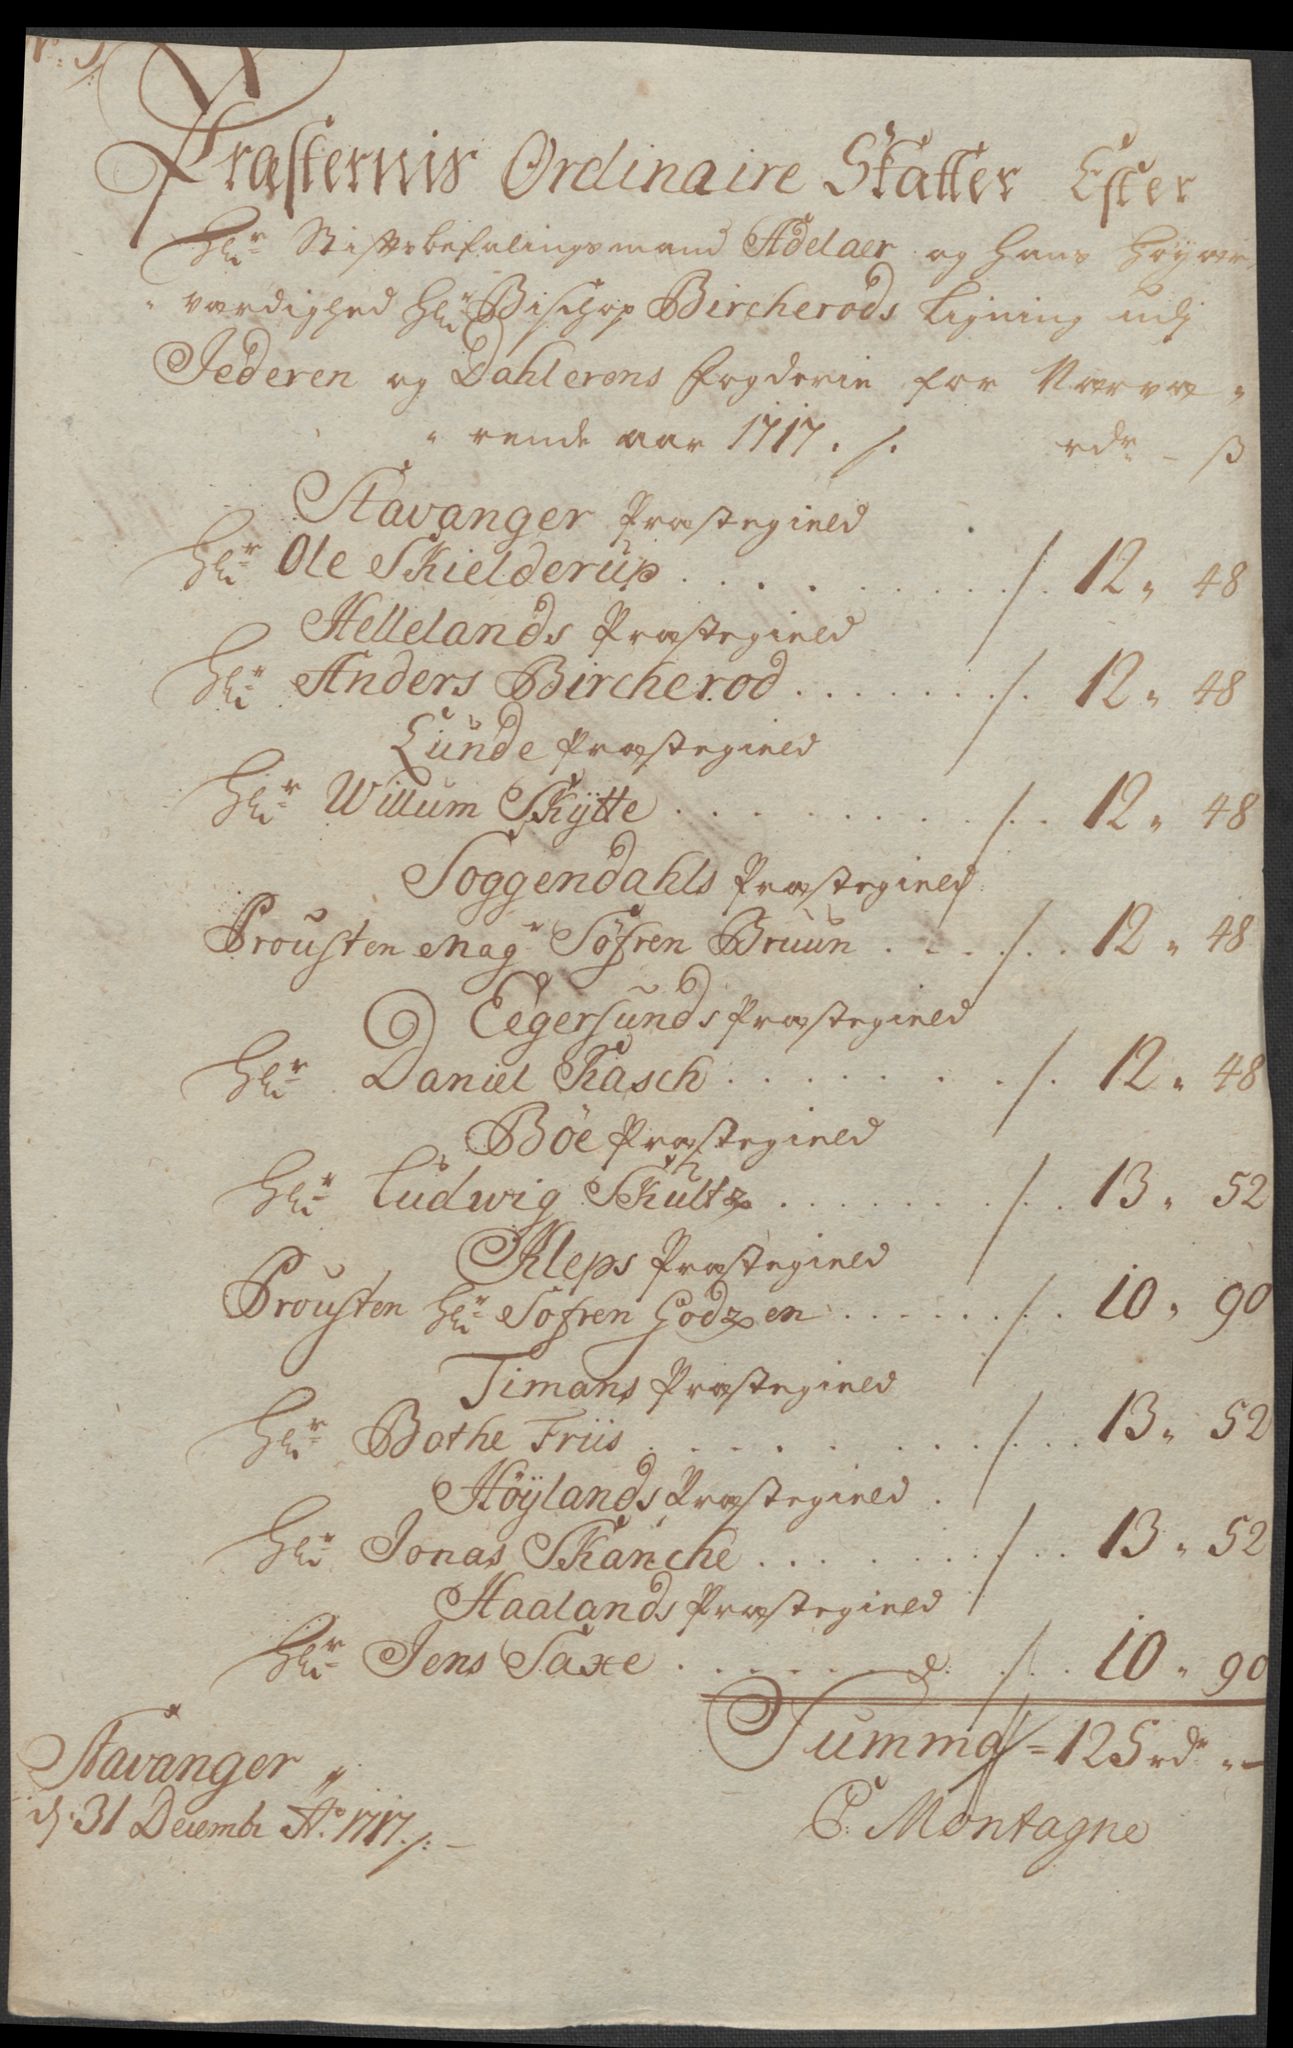 Præsternis Ordinaire Skatter Efter
Hr Stiftsbefalingsmand Adelaer og hans Høyær-
værdighed Hr Bischop Bircherods Ligning udj
Jederen og Dahlerens fogderie for Nærvæ-
rende aar 1717. /. rdr - ß
Stavanger Præstegield
Hr Ole Skielderup . . . . . . . . /. 12 „ 48
Hellelands Præstegield
Hr Anders Bircherod . . . . . . /. 12 „ 48
Lunde Præstegield
Hr Willum Skÿtte . . . . . . . . /. . 12 „ 48
Soggendahls Præstegield
Prousten Magr Söfren Bruun . . . . /. . 12 „ 48
Eegersunds Præstegield
Hr Daniel Kasch . . . . . . . . /. 12 „ 48
Böe Præstegield
Hr Ludwig Skultz . . . . . . . /. . 13 „ 52
Kleps Præstegield
Prousten Hr Söfren Godzen . . . . . . /. . 10 „ 90
Timans Præstegield
Hr Bothe Friis . . . . . . . . . /. . . 13 „ 52
Höÿlands Præstegield .
Hr Jonas Skanche . . . . . . . /. . . 13 „ 52
Haalands Præstegield
Hr Jens Saxe . . . . . . . /. . . 10 „ 90
Summa = 125 rdr „ -
Stavanger
d: 31 Decembr Ao. 1717. /: -
P. Montagne